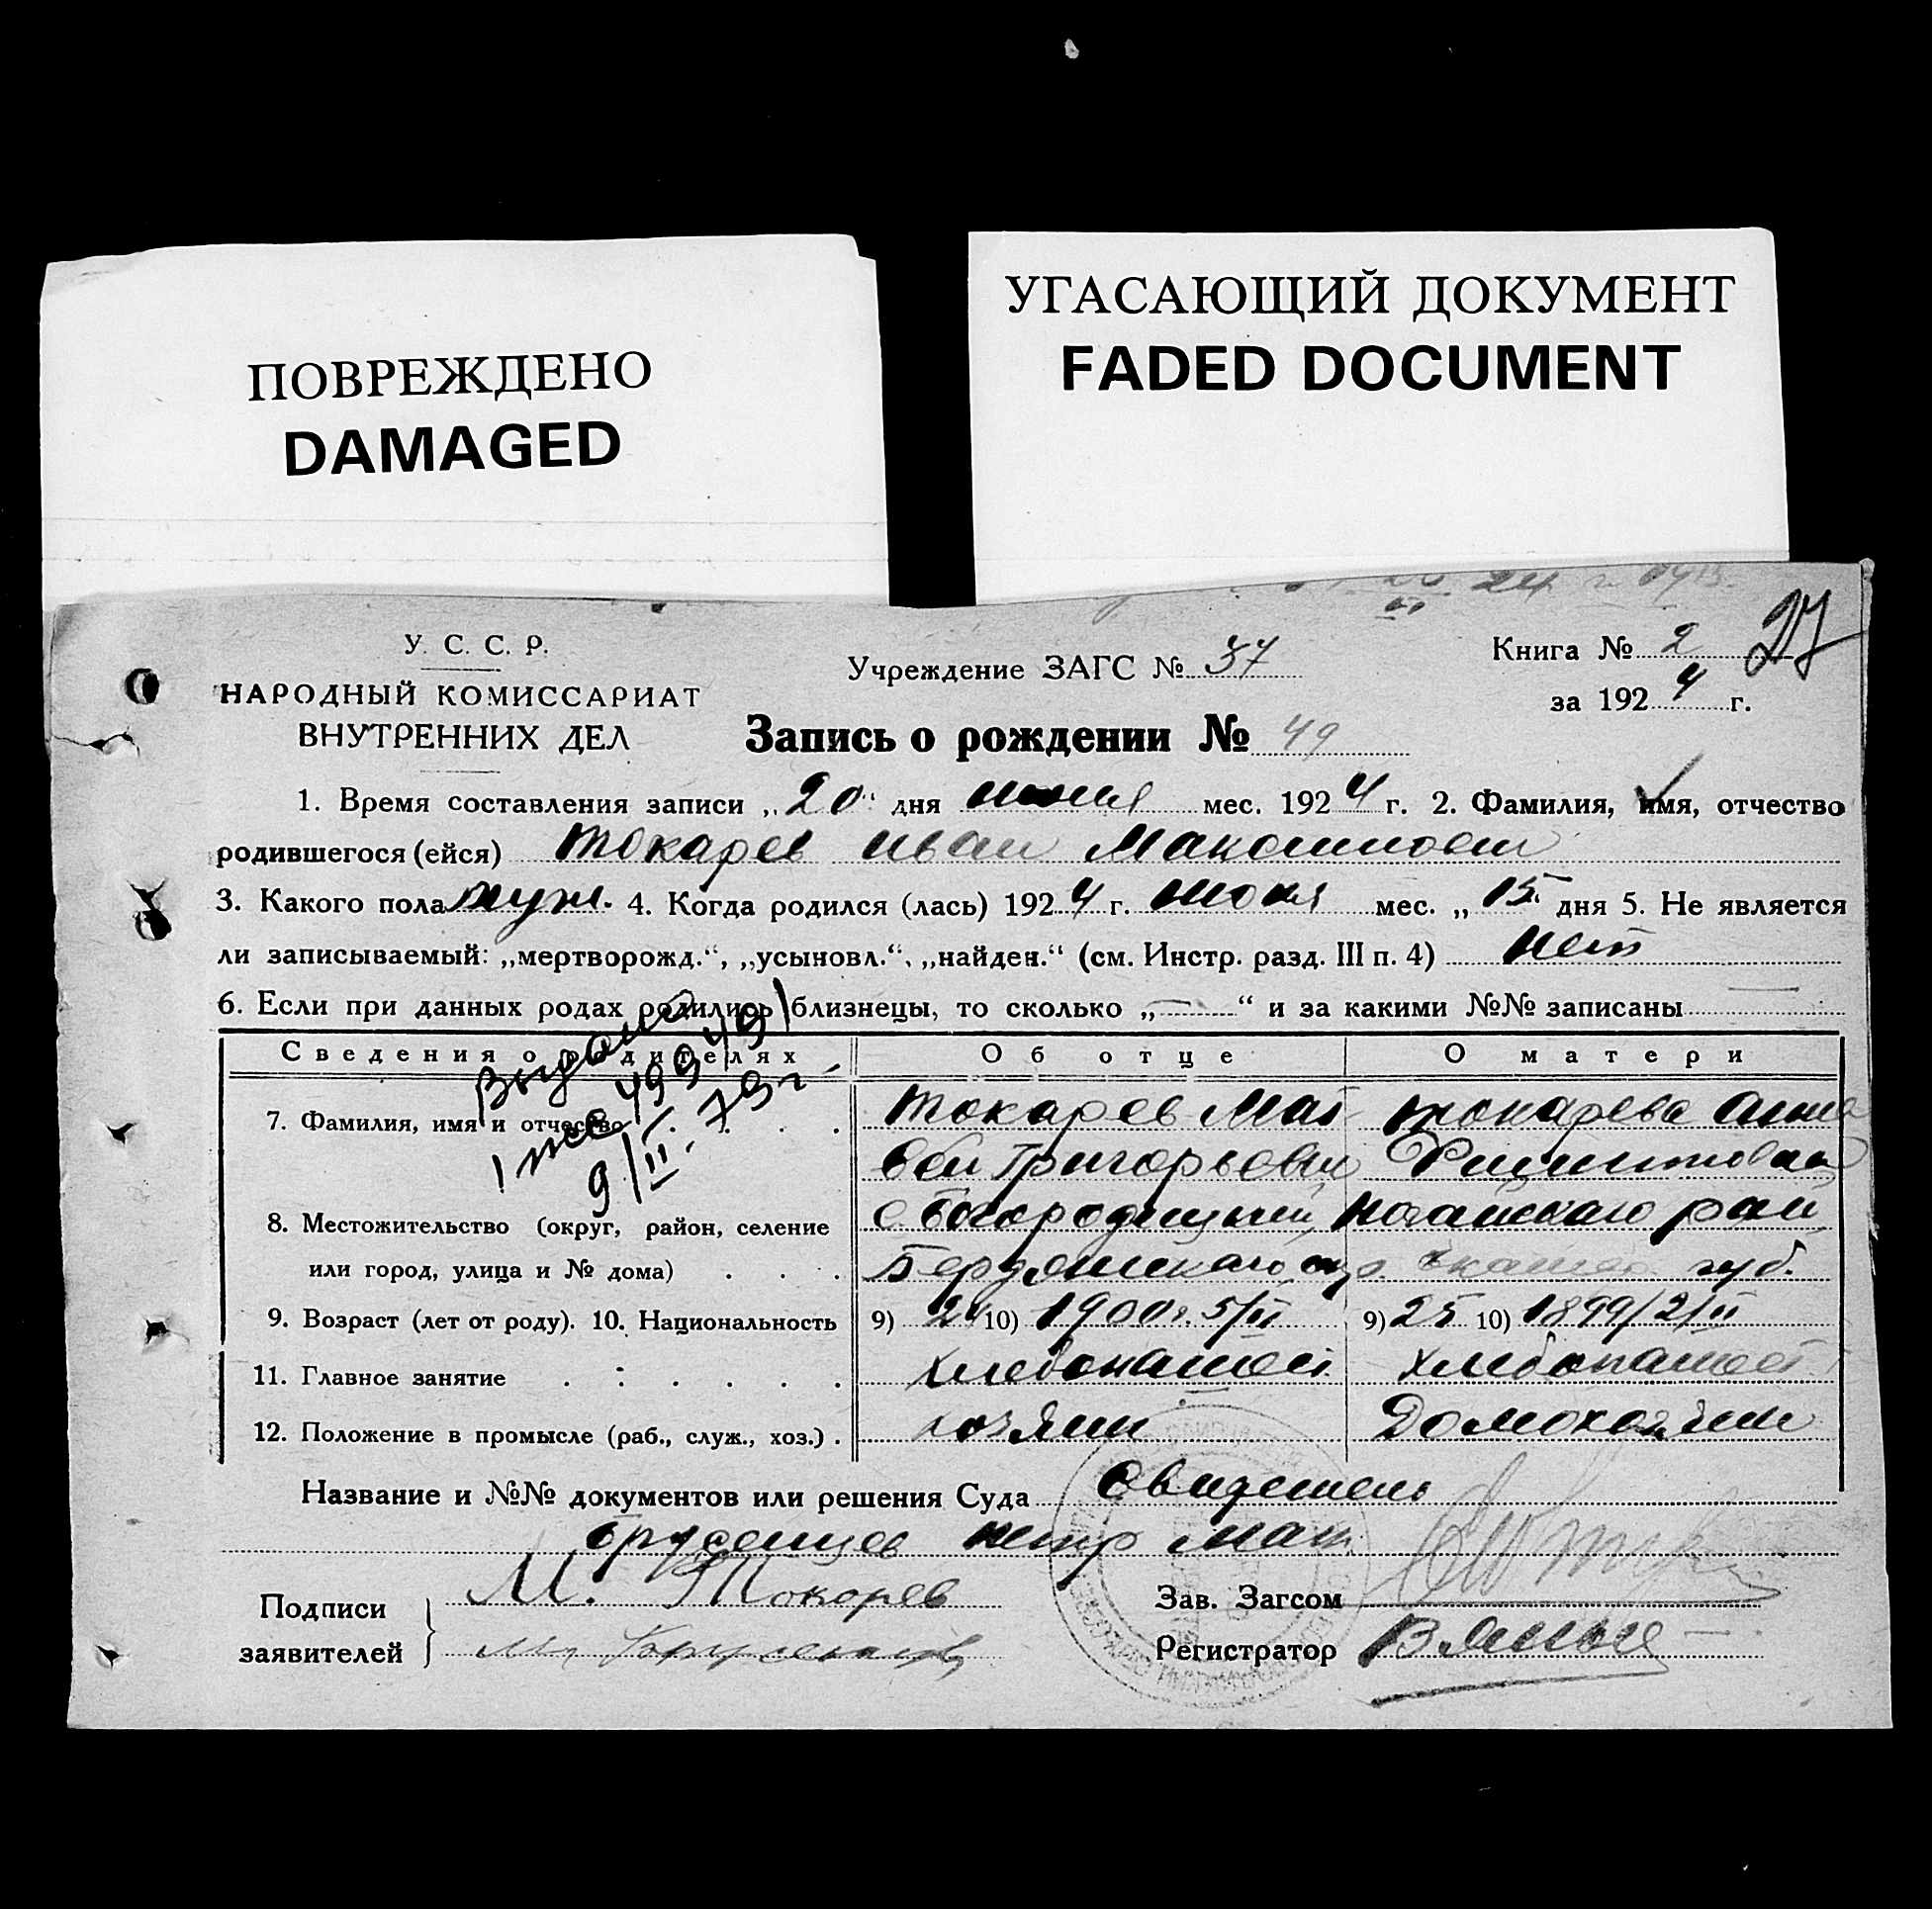 ПОВРЕЖДЕНО
DAMAGED
УГАСАЮЩИЙ ДОКУМЕНТ
FADED DOCUMENT
24
27
У. С. С. Р.
НАРОДНЫЙ КОМИССАРИАТ
ВНУТРЕННИХ ДЕЛ
Учреждение ЗАГС № 37
Книга № 2
за 1924 г.
Запись о рождении № 49
1. Время составления записи „20“ дня июня мес. 1924 г. 2. Фамилия, имя, отчество
родившегося (ейся) Токарев Иван
3. Какого пола муж. 4. Когда родился (лась) 1924 г. июня мес. „15 дня 5. Не является
ли записываемый: „мертворожд.“, „усыновл.“, „найден.“ (см. Инстр. разд. III п. 4) нет
6. Если при данных родах родились близнецы, то сколько „—“ и за какими №№ записаны —
Выдано
9/II.79г.
Сведения о родителях Об отце О матери
7. Фамилия, имя и отчество Токарев Мат Токарева Анна
вей Григорьевич
8. Местожительство (округ, район, селение с Богородицкий Ногайского рай
или город, улица и № дома) Бердянского окр. губ.
9. Возраст (лет от роду). 10. Национальность 9) 24 10) 1900г. 5/II 9) 25 10) 1899/2/II
11. Главное занятие хлебопашец хлебопашец
12. Положение в промысле (раб., служ., хоз.) хозяин
Название и №№ документов или решения Суда Свидетель
Брусенцев Петр Мат.
Подписи заявителей М. Токарев
Брусенцев
Зав. Загсом
Регистратор